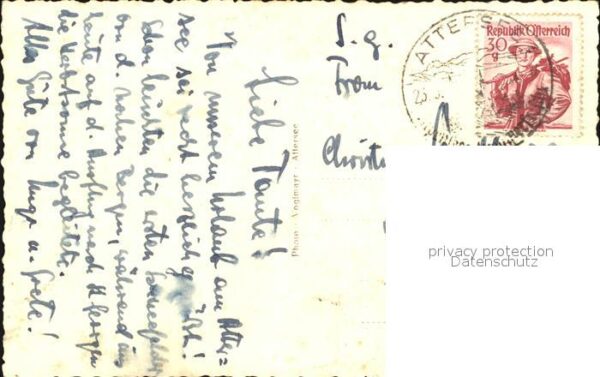 Liebe Tante!
Von unserem Urlaub am Atter=
see sei recht herzlich gegrüßt!
Schon leuchten die ersten Schneefelder
von d. hohen Bergen, während uns
heute auf d. Ausflug nach St. Georgen
die Herbstsonne begleitete.
Alles Gute von Hugo u. Grete!
Photo Anglmayr - Attersee
S. g.
Frau
Christ
ATTERSEE
Republik Österreich
30
g
privacy protection
Datenschutz